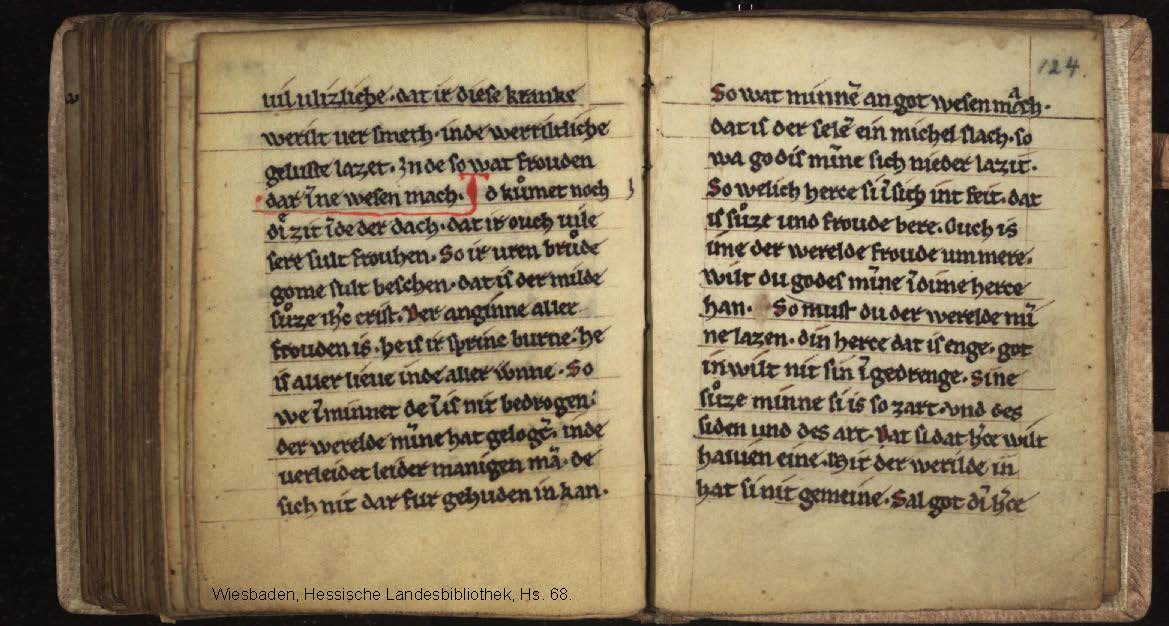 uil ulizliche · dat ir diese kranke
werilt uer smeth · inde wertūtliche
geluste lazet · Inde so wat frouden
dar īne wesen mach · Id kůmet noch
dǐ zit īde der dach · dat ir ouch uile
sere sult frouhen · So ir uren brůde
gome sult beschen · dat is der milde
sůze ih̄c crist · Der anginne aller
frouden is · he is ir sprinc burne · he
is aller lieue inde aller wnne · So
we īminnet de ī is nit bedrogen ·
der werelde mīne hat gelogē · inde
uerleidet leider manigen mā · de
sich nit dar fur gehuden in kan ·
124
So wat minnē an got wesen mach ·
dat is der selē ein michel slach · so
wa godis mīne sich nieder lazit ·
So welich herce si ī sich int feit · dat
is sůze und froude bere · Ouch is
ime der werelde froude ummere ·
wilt du godes mīne ī dime herce
han · So must du der werelde mī
ne lazen · din herce dat is enge · got
in wilt nit sin ī gedrenge · Sine
sůze minne si is so zart · vnd des
siden und des art · Dat si dat h̄ce wilt
hauen eine · Mit der werilde in
hat si nit gemeine · Sal got dī h̄ce
Wiesbaden, Hessische Landesbibliothek, Hs. 68.